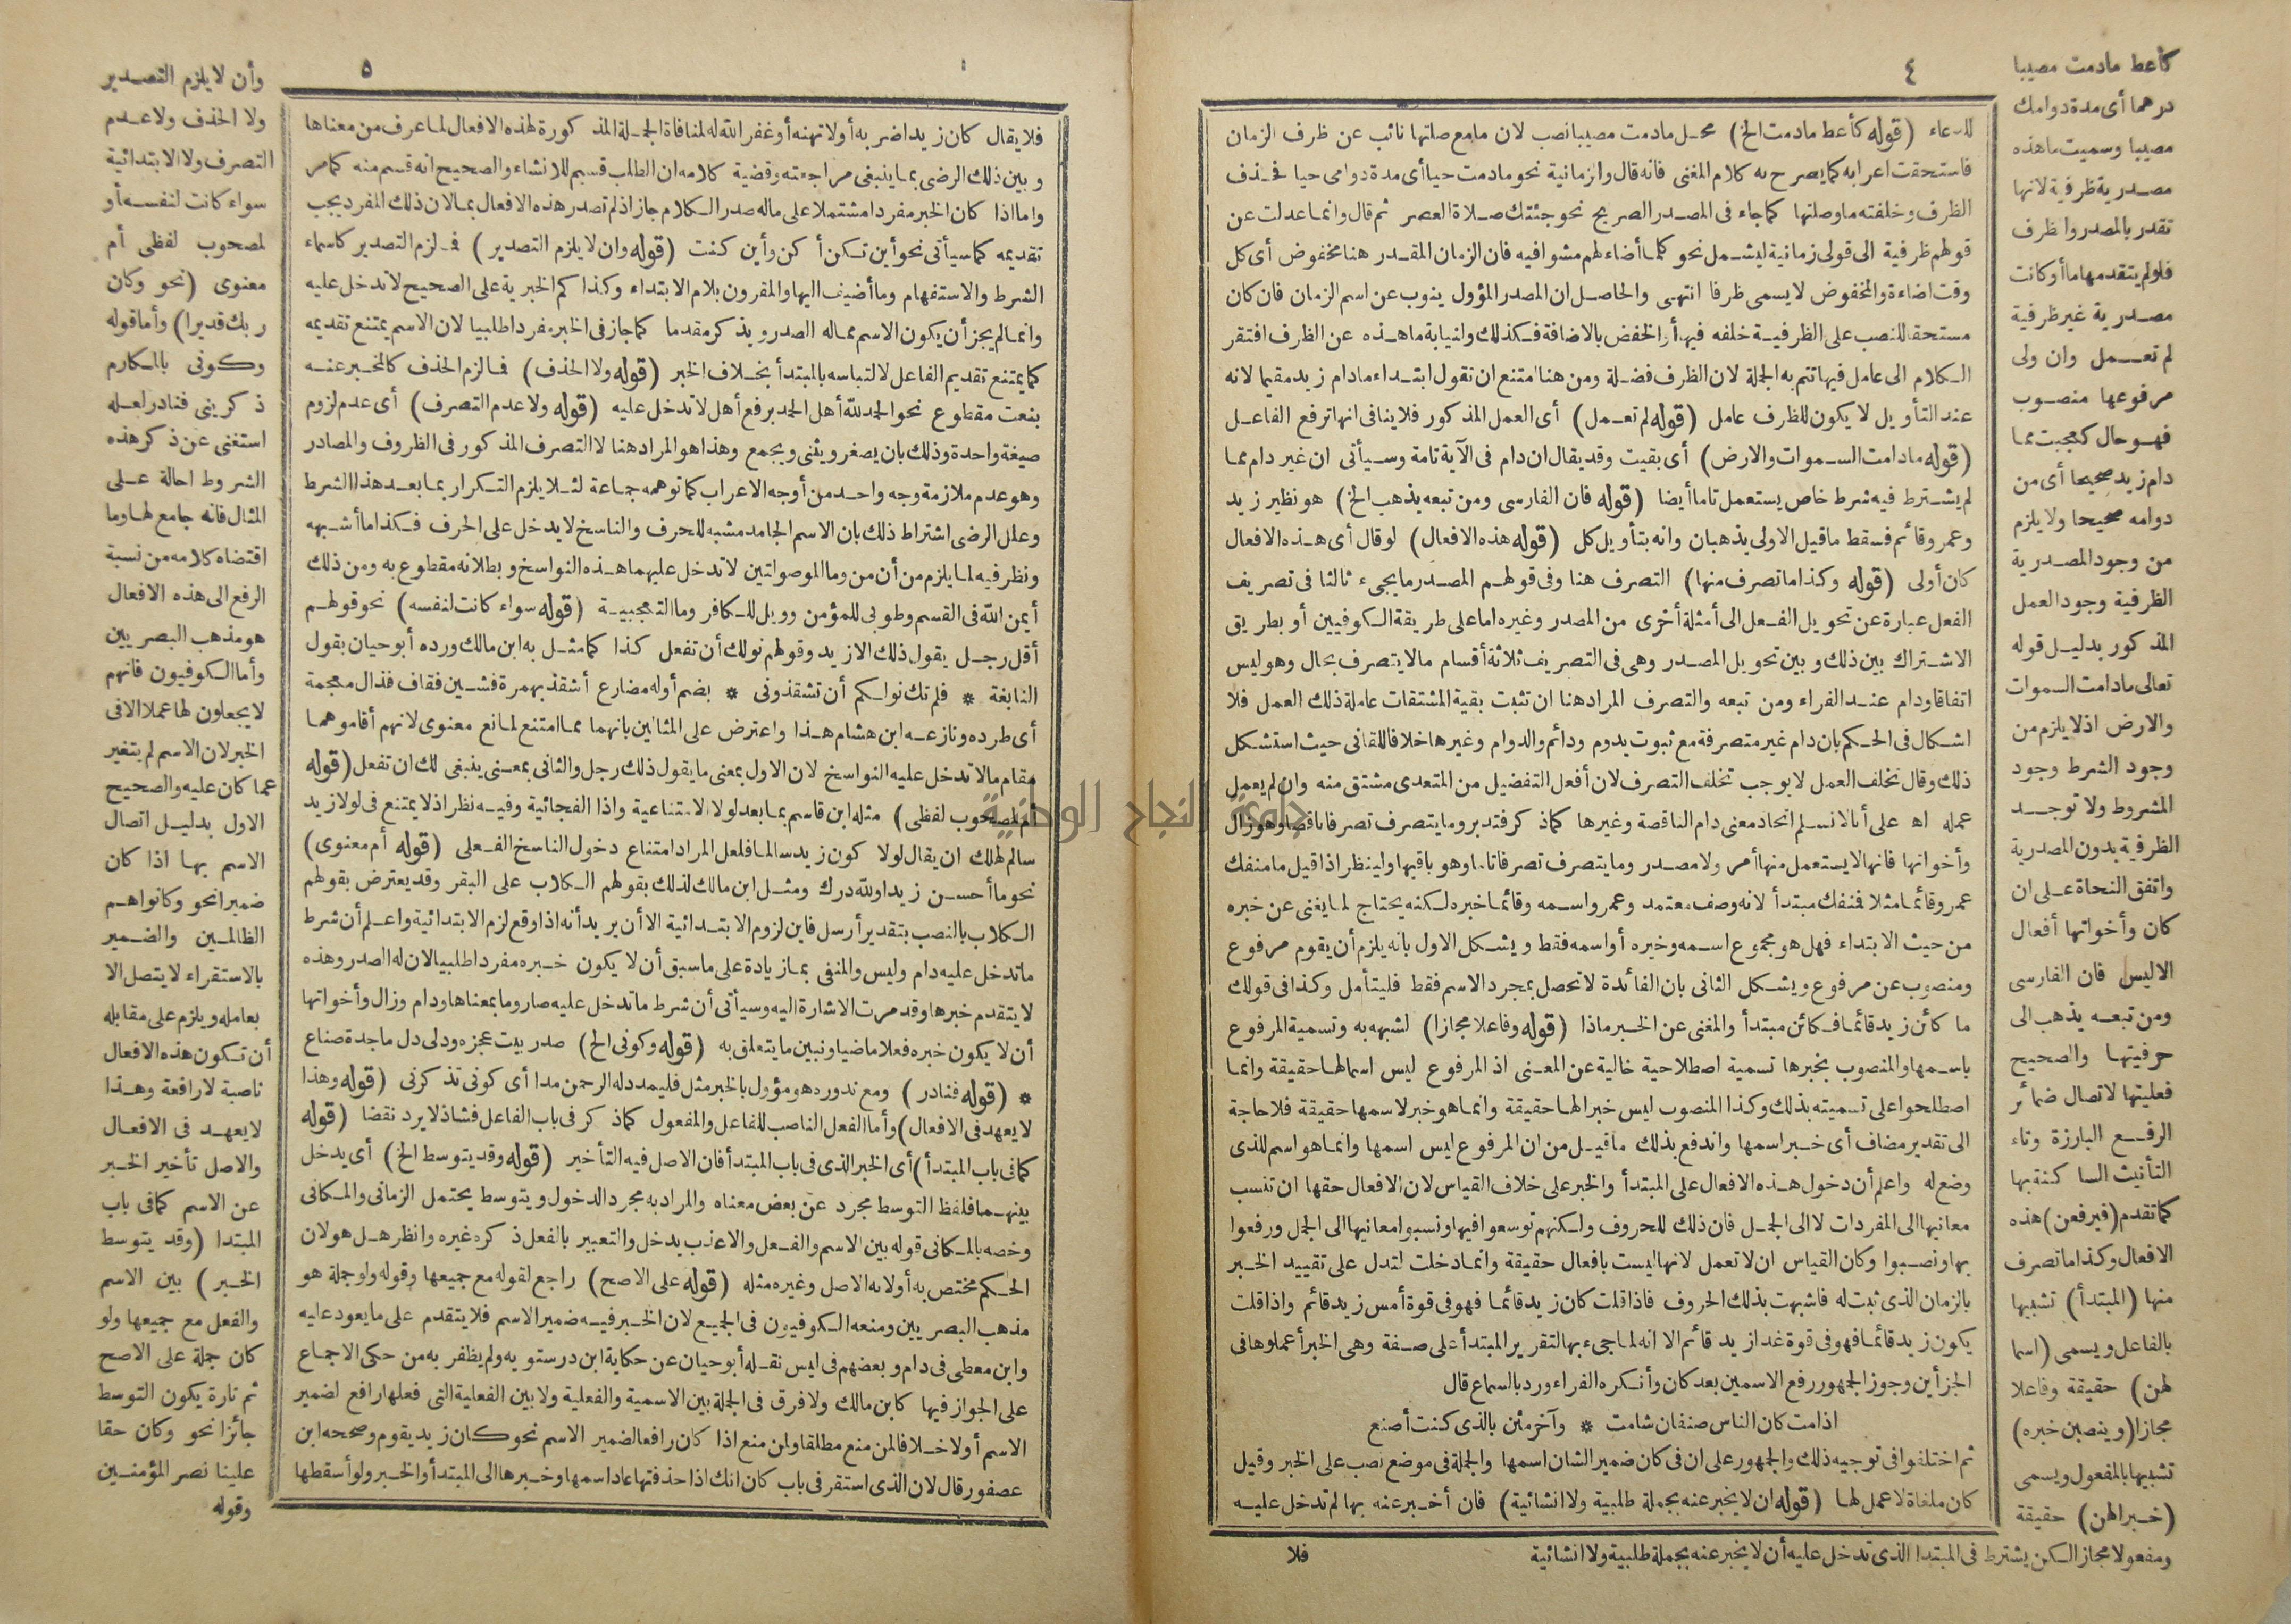 ٤
كأعط مادمت مصيبا
درهما أى مدة دوامك
مصيبا وسميت ما هذه
مصدرية ظرفية لانها
تقدر بالمصدر والظرف
فلو لم يتقدمها ما أو كانت
مصدرية غير ظرفية
لم تعمل وان ولى
مرفوعها منصوب
فهو حال كعجبت مما
دام زيد صحيحا أى من
دوامه صحيحا ولا يلزم
من وجود المصدرية
الظرفية وجود العمل
المذكور بدليل قوله
تعالى مادامت السموات
والارض اذ لا يلزم من
وجود الشرط وجود
المشروط ولا توجد
الظرفية بدون المصدرية
واتفق النحاة على ان
كان وأخواتها أفعال
الا ليس فان الفارسى
ومن تبعه يذهب الى
حرفيتها والصحيح
فعليتها لاتصال ضمائر
الرفع البارزة وتاء
التأنيث الساكنة بها
كما تقدم (فيرفعن) هذه
الافعال وكذا ما تصرف
منها (المبتدأ) تشبيها
بالفاعل ويسمى (اسما
لهن) حقيقة وفاعلا
مجازا (وينصبن خبره)
تشبيها بالمفعول ويسمى
(خبرا لهن) حقيقة
ومفعولا مجازا لكن يشترط فى المبتدا الذى تدخل عليه أن لا يخبر عنه بجملة طلبية ولا انشائية
للدعاء (قوله كأعط مادمت الخ) محل مادمت مصيبا نصب لان ما مع صلتها نائب عن ظرف الزمان
فاستحقت اعرابه كما يصرح به كلام المغنى فانه قال والزمانية نحو مادمت حيا أى مدة دوامى حيا فحذف
الظرف وخلفته ما وصلتها كما جاء فى المصدر الصريح نحو جئتك صلاة العصر ثم قال وانما عدلت عن
قولهم ظرفية الى قولى زمانية ليشمل نحو كلما أضاء لهم مشوا فيه فان الزمان المقدر هنا مخفوض أى كل
وقت اضاءة والمخفوض لا يسمى ظرفا انتهى والحاصل ان المصدر المؤول ينوب عن اسم الزمان فان كان
مستحقا للنصب على الظرفية خلفه فيها أو الخفض بالاضافة فكذلك ولنيابة ما هذه عن الظرف افتقر
الكلام الى عامل فيها تتم به الجملة لان الظرف فضلة ومن هنا امتنع ان تقول ابتداء مادام زيد مقيما لانه
عند التأويل لا يكون للظرف عامل (قوله لم تعمل) أى العمل المذكور فلا ينافى انها ترفع الفاعل
(قوله مادامت السموات والارض) أى بقيت وقد يقال ان دام فى الآية تامة وسيأتى ان غير دام مما
لم يشترط فيه شرط خاص يستعمل تاما أيضا (قوله فان الفارسى ومن تبعه يذهب الخ) هو نظير زيد
وعمرو قائم فسقط ما قيل الاولى يذهبان وانه بتأويل كل (قوله هذه الافعال) لو قال أى هذه الافعال
كان أولى (قوله وكذا ما تصرف منها) التصرف هنا وفى قولهم المصدر ما يجىء ثالثا فى تصريف
الفعل عبارة عن تحويل الفعل الى أمثلة أخرى من المصدر وغيره اما على طريقة الكوفيين أو بطريق
الاشتراك بين ذلك وبين تحويل المصدر وهى فى التصريف ثلاثة أقسام ما لا يتصرف بحال وهو ليس
اتفاقا ودام عند الفراء ومن تبعه والتصرف المراد هنا ان تثبت بقية المشتقات عاملة ذلك العمل فلا
اشكال فى الحكم بان دام غير متصرفة مع ثبوت يدوم ودائم والدوام وغيرها خلافا للقانى حيث استشكل
ذلك وقال تخلف العمل لا يوجب تخلف التصرف لان أفعل التفضيل من المتعدى مشتق منه وان لم يعمل
عمله اه على أنا لا نسلم اتحاد معنى دام الناقصة وغيرها كما ذكر فتدبر وما يتصرف تصرفا ناقصا وهو زال
وأخواتها فانها لا يستعمل منها أمر ولا مصدر وما يتصرف تصرفا تاما وهو باقيها ولينظر اذا قيل ما منفك
عمرو قائما مثلا فمنفك مبتدأ لانه وصف معتمد وعمرو اسمه وقائما خبره لكنه يحتاج لما يغنى عن خبره
من حيث الابتداء فهل هو مجموع اسمه وخبره أو اسمه فقط ويشكل الاول بانه يلزم أن يقوم مرفوع
ومنصوب عن مرفوع ويشكل الثانى بان الفائدة لا تحصل بمجرد الاسم فقط فليتأمل وكذا فى قولك
ما كائن زيد قائما فكائن مبتدأ والمغنى عن الخبر ماذا (قوله وفاعلا مجازا) لشبهه به وتسمية المرفوع
باسمها والمنصوب بخبرها تسمية اصطلاحية خالية عن المعنى اذ المرفوع ليس اسما لها حقيقة وانما
اصطلحوا على تسميته بذلك وكذا المنصوب ليس خبرا لها حقيقة وانما هو خبر لاسمها حقيقة فلا حاجة
الى تقدير مضاف أى خبر اسمها واندفع بذلك ما قيل من ان المرفوع ليس اسمها وانما هو اسم للذى
وضع له واعلم أن دخول هذه الافعال على المبتدأ والخبر على خلاف القياس لان الافعال حقها ان تنسب
معانيها الى المفردات لا الى الجمل فان ذلك للحروف ولكنهم توسعوا فيها ونسبوا معانيها الى الجمل ورفعوا
بها ونصبوا وكان القياس ان لا تعمل لانها ليست بافعال حقيقة وانما دخلت لتدل على تقييد الخبر
بالزمان الذى ثبت له فاشبهت بذلك الحروف فاذا قلت كان زيد قائما فهو فى قوة أمس زيد قائم واذا قلت
يكون زيد قائما فهو فى قوة غدا زيد قائم الا انه لما جىء بها لتقرير المبتدأ على صفة وهى الخبر أعملوها فى
الجزأين وجوز الجمهور رفع الاسمين بعد كان وأنكره الفراء ورد بالسماع قال
اذا مت كان الناس صنفان شامت * وآخر مثن بالذى كنت أصنع
ثم اختلفوا فى توجيه ذلك والجمهور على ان فى كان ضمير الشان اسمها والجملة فى موضع نصب على الخبر وقيل
كان ملغاة لا عمل لها (قوله ان لا يخبر عنه بجملة طلبية ولا انشائية) فان أخبر عنه بها لم تدخل عليه
فلا
٥
فلا يقال كان زيد اضربه أو لا تهنه أو غفر الله له لمنافاة الجملة المذكورة لهذه الافعال لما عرف من معناها
وبين ذلك الرضى بما ينبغى مراجعته وقضية كلامه ان الطلب قسيم للانشاء والصحيح انه قسم منه كما مر
واما اذا كان الخبر مفردا مشتملا على ماله صدر الكلام جاز اذ لم تصدر هذه الافعال بما لان ذلك المفرد يجب
تقديمه كما سيأتى نحو أين تكن أكن وأين كنت (قوله وان لا يلزم التصدير) فلزم التصدير كاسماء
الشرط والاستفهام وما أضيف اليها والمقرون بلام الابتداء وكذا كم الخبرية على الصحيح لا تدخل عليه
وانما لم يجز أن يكون الاسم مما له الصدر ويذكر مقدما كما جاز فى الخبر مفردا طلبيا لان الاسم يمتنع تقديمه
كما يمتنع تقديم الفاعل لالتباسه بالمبتدأ بخلاف الخبر (قوله ولا الحذف) فالزم الحذف كالمخبر عنه
بنعت مقطوع نحو الحمد لله أهل الحمد برفع أهل لا تدخل عليه (قوله ولا عدم التصرف) أى عدم لزوم
صيغة واحدة وذلك بان يصغر ويثنى ويجمع وهذا هو المراد هنا لا التصرف المذكور فى الظروف والمصادر
وهو عدم ملازمة وجه واحد من أوجه الاعراب كما توهمه جماعة لئلا يلزم التكرار بما بعد هذا الشرط
وعلل الرضى اشتراط ذلك بان الاسم الجامد مشبه للحرف والناسخ لا يدخل على الحرف فكذا ما أشبهه
ونظر فيه لما يلزم من أن من وما الموصولتين لا تدخل عليهما هذه النواسخ وبطلانه مقطوع به ومن ذلك
أيمن الله فى القسم وطوبى للمؤمن وويل للكافر وما التعجبية (قوله سواء كانت لنفسه) نحو قولهم
أقل رجل يقول ذلك الا زيد وقولهم نولك أن تفعل كذا كما مثل به ابن مالك ورده أبو حيان بقول
النابغة * فلم تك نولكم أن تشقذونى * بضم أوله مضارع أشقذ بهمزة فشين فقاف فذال معجمة
أى طرده ونازعه ابن هشام هذا واعترض على المثالين بانهما مما امتنع لمانع معنوى لانهم أقاموهما
مقام ما لا تدخل عليه النواسخ لان الاول بمعنى ما يقول ذلك رجل والثانى بمعنى ينبغى لك ان تفعل (قوله
لمصحوب لفظى) مثله ابن قاسم بما بعد لولا الامتناعية واذا الفجائية وفيه نظر اذ لا يمتنع فى لولا زيد
سالم لهلك ان يقال لولا كون زيد سالما فلعل المراد امتناع دخول الناسخ الفعلى (قوله أم معنوى)
نحو ما أحسن زيدا ولله درك ومثل ابن مالك لذلك بقولهم الكلاب على البقر وقد يعترض بقولهم
الكلاب بالنصب بتقدير أرسل فاين لزوم الابتدائية الا أن يريد أنه اذا وقع لزم الابتدائية واعلم أن شرط
ما تدخل عليه دام وليس والمنفى بما زيادة على ما سبق أن لا يكون خبره مفردا طلبيا لان له الصدر وهذه
لا يتقدم خبرها وقد مرت الاشارة اليه وسيأتى أن شرط ما تدخل عليه صار وما بمعناها ودام وزال وأخواتها
أن لا يكون خبره فعلا ماضيا ونبين ما يتعلق به (قوله وكونى الخ) صدر بيت عجزه ودلى دل ماجدة صناع
* (قوله فنادر) ومع ندوره هو مؤول بالخبر مثل فليمدد له الرحمن مدا أى كونى تذكرنى (قوله وهذا
لا يعهد فى الافعال) وأما الفعل الناصب للفاعل والمفعول كما ذكر فى باب الفاعل فشاذ لا يرد نقضا (قوله
كما فى باب المبتدأ) أى الخبر الذى فى باب المبتدأ فان الاصل فيه التأخير (قوله وقد يتوسط الخ) أى يدخل
بينهما فلفظ التوسط مجرد عن بعض معناه والمراد به مجرد الدخول ويتوسط يحتمل الزمانى والمكانى
وخصه بالمكانى قوله بين الاسم والفعل والاعذب يدخل والتعبير بالفعل ذكره غيره وانظر هل هو لان
الحكم مختص به أو لانه الاصل وغيره مثله (قوله على الاصح) راجع لقوله مع جميعها وقوله ولو جملة هو
مذهب البصريين ومنعه الكوفيون فى الجميع لان الخبر فيه ضمير الاسم فلا يتقدم على ما يعود عليه
وابن معطى فى دام وبعضهم فى ليس نقله أبو حيان عن حكاية ابن درستويه ولم يظفر به من حكى الاجماع
على الجواز فيها كابن مالك ولا فرق فى الجملة بين الاسمية والفعلية ولا بين الفعلية التى فعلها رافع لضمير
الاسم أولا خلافا لمن منع مطلقا ولمن منع اذا كان رافعا لضمير الاسم نحو كان زيد يقوم وصححه ابن
عصفور قال لان الذى استقر فى باب كان انك اذا حذفتها عاد اسمها وخبرها الى المبتدأ والخبر ولو أسقطها
وأن لا يلزم التصدير
ولا الحذف ولا عدم
التصرف ولا الابتدائية
سواء كانت لنفسه أو
لمصحوب لفظى أم
معنوى (نحو وكان
ربك قديرا) وأما قوله
وكونى بالمكارم
ذكرينى فنادر لعله
استغنى عن ذكر هذه
الشروط احالة على
المثال فانه جامع لها وما
اقتضاه كلامه من نسبة
الرفع الى هذه الافعال
هو مذهب البصريين
وأما الكوفيون فانهم
لا يجعلون لها عملا الا فى
الخبر لان الاسم لم يتغير
عما كان عليه والصحيح
الاول بدليل اتصال
الاسم بها اذا كان
ضميرا نحو وكانوا هم
الظالمين والضمير
بالاستقراء لا يتصل الا
بعامله ويلزم على مقابله
أن تكون هذه الافعال
ناصبة لا رافعة وهذا
لا يعهد فى الافعال
والاصل تأخير الخبر
عن الاسم كما فى باب
المبتدا (وقد يتوسط
الخبر) بين الاسم
والفعل مع جميعها ولو
كان جملة على الاصح
ثم تارة يكون التوسط
جائزا نحو وكان حقا
علينا نصر المؤمنين
وقوله
جامعة النجاح الوطنية